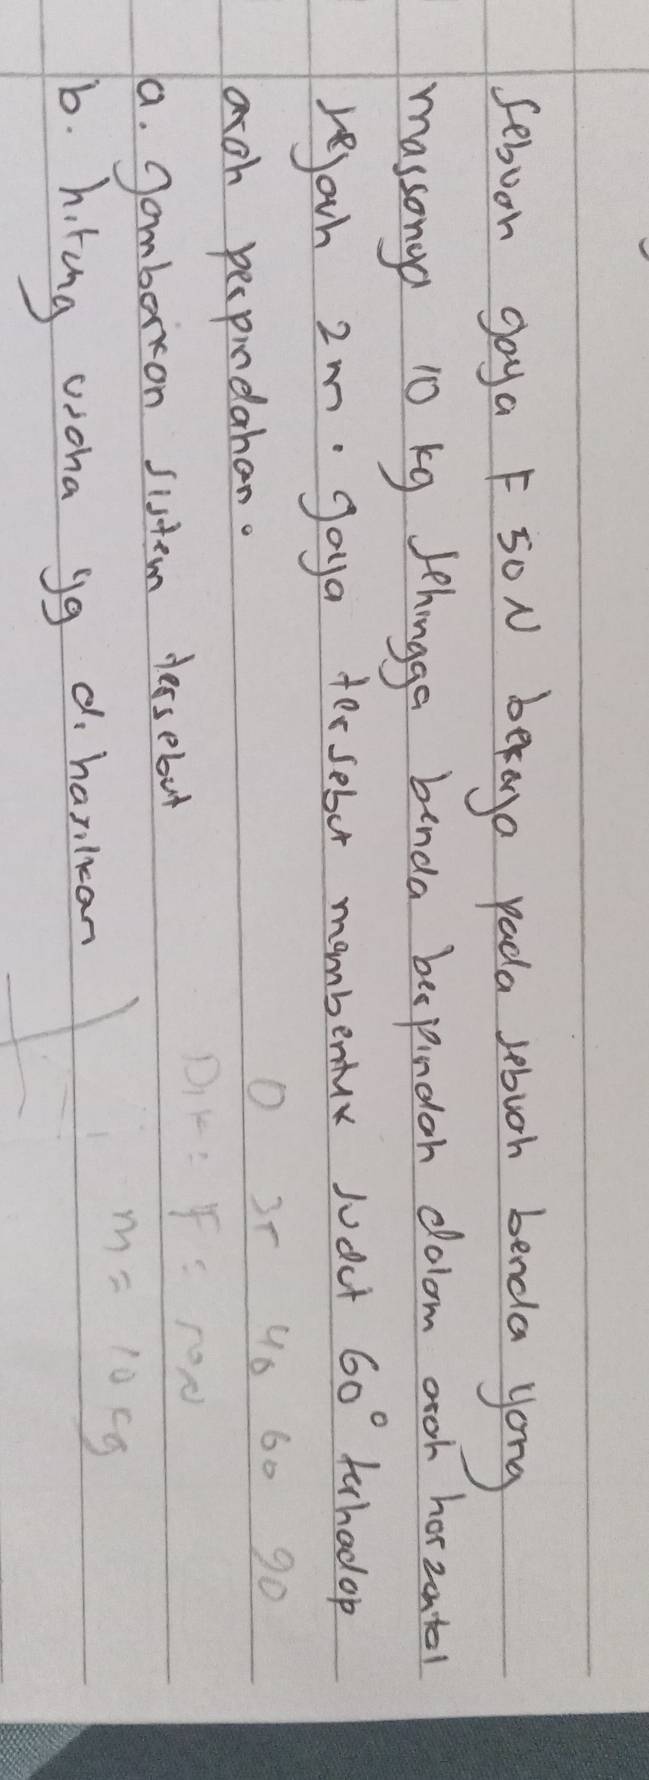 Sebuah gaya F 50 N bekerja pada sebuah benda yang
massanya 10 kg sehingga benda berpindah dalam arah horzontal
sejauh 2 m. gaya tersebut membentuk sudut 60° terhadap
arah perpindahan.
0 30 40 60 90
a. gambarkan sistem terssebut
Dik: F = 50N
b. hitung usaha yg dihasilkan
m = 10 kg